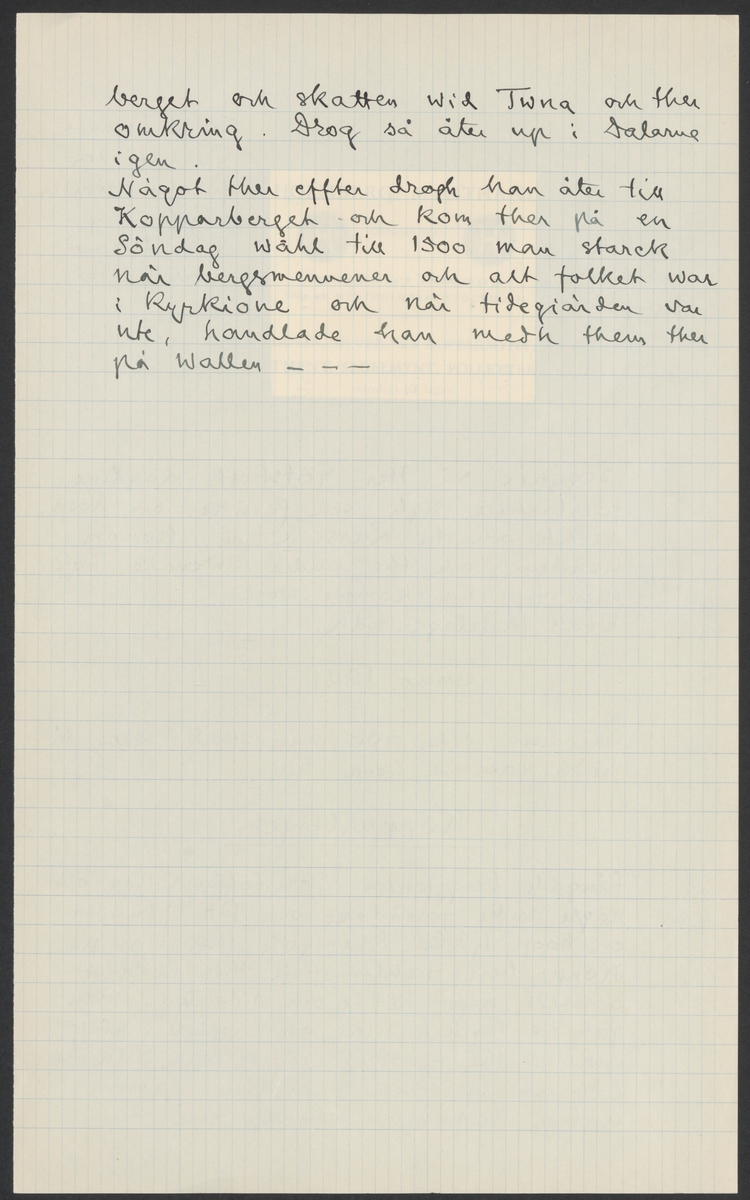 berget och skatten wid Twna och ther
omkring. Drog så åter up i Dalarne
igen.
Något ther effter drogh han åter till
Kopparberget och kom ther på en
Söndag wähl till 1500 man starck
när bergsmennener och alt folket war
i kyrkione och när tidegiärden var
ute, handlade han medh them ther
på Wallen - - -